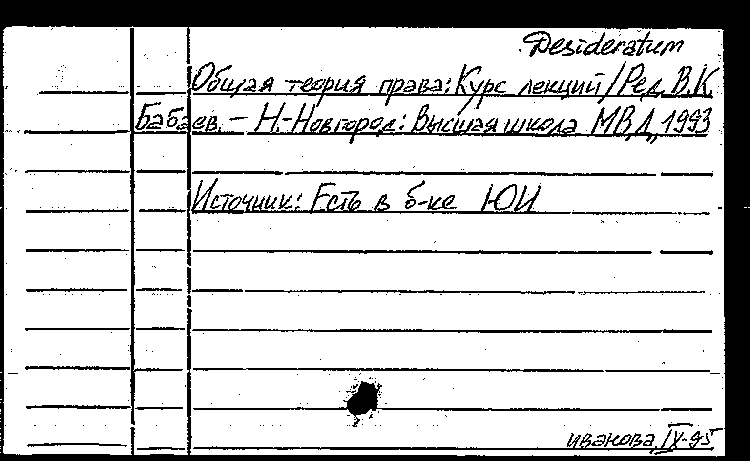 Desideratum
Общая теория права: Курс лекций / Ред. В.К.
Бабаев. – Н.-Новгород: Высшая школа МВД, 1993
Источник: Есть в б-ке ЮИ
иванова IX-95